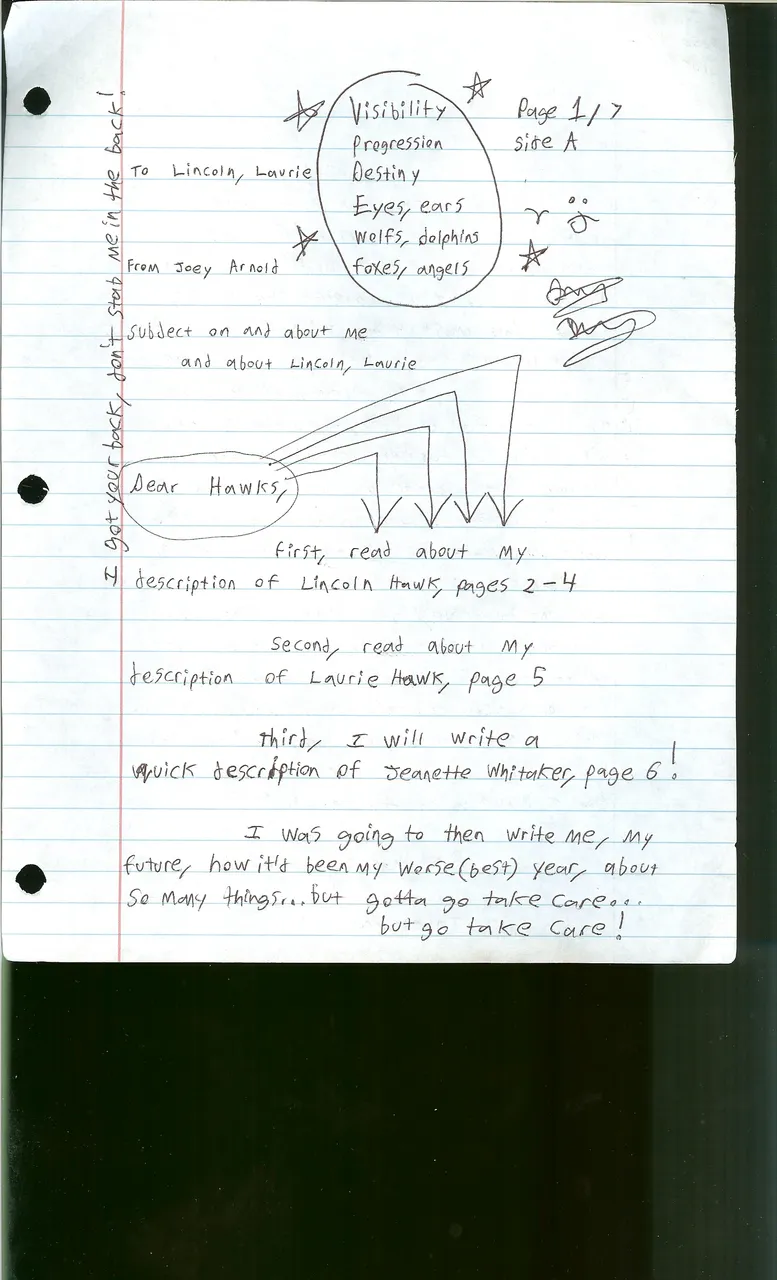 Visibility
Page 1/7
Progression
side A
To Lincoln, Laurie
Destiny
Eyes, ears
wolfs, dolphins
From Joey Arnold
foxes, angels
Subject on and about me
and about Lincoln, Laurie
Dear Hawks,
first, read about my
description of Lincoln Hawk, pages 2-4
Second, read about my
description of Laurie Hawk, page 5
third, I will write a
quick description of Jeanette Whitaker, page 6!
I was going to then write me, my
future, how it'd been my worse (best) year, about
so many things... but gotta go take care...
but go take care!
I got your back, don't stab me in the back!